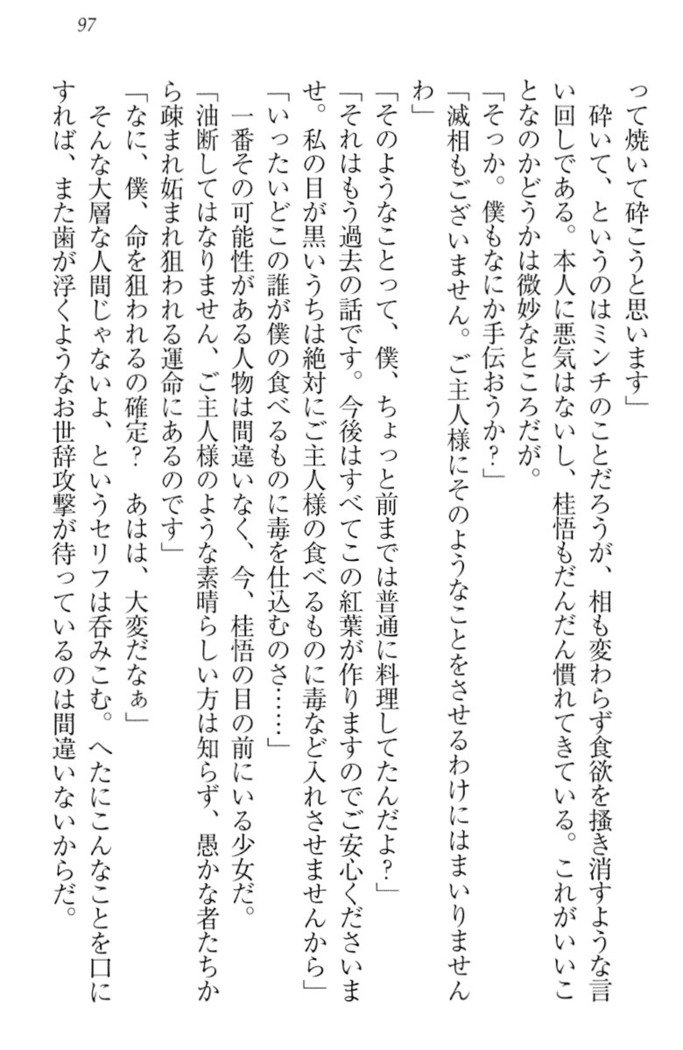 97
って焼いて砕こうと思います」
　砕いて、というのはミンチのことだろうが、相も変わらず食欲を掻き消すような言
い回しである。本人に悪気はないし、桂悟もだんだん慣れてきている。これがいいこ
となのかどうかは微妙なところだが。
「そっか。僕もなにか手伝おうか？」
「滅相もございません。ご主人様にそのようなことをさせるわけにはまいりません
わ」
「そのようなことって、僕、ちょっと前までは普通に料理してたんだよ？」
「それはもう過去の話です。今後はすべてこの紅葉が作りますのでご安心くださいま
せ。私の目が黒いうちは絶対にご主人様の食べるものに毒など入れさせませんから」
「いったいどこの誰が僕の食べるものに毒を仕込むのさ……」
　一番その可能性がある人物は間違いなく、今、桂悟の目の前にいる少女だ。
「油断してはなりません、ご主人様のような素晴らしい方は知らず、愚かな者たちか
ら疎まれ妬まれ狙われる運命にあるのです」
「なに、僕、命を狙われるの確定？　あはは、大変だなぁ」
　そんな大層な人間じゃないよ、というセリフは呑みこむ。へたにこんなことを口に
すれば、また歯が浮くようなお世辞攻撃が待っているのは間違いないからだ。